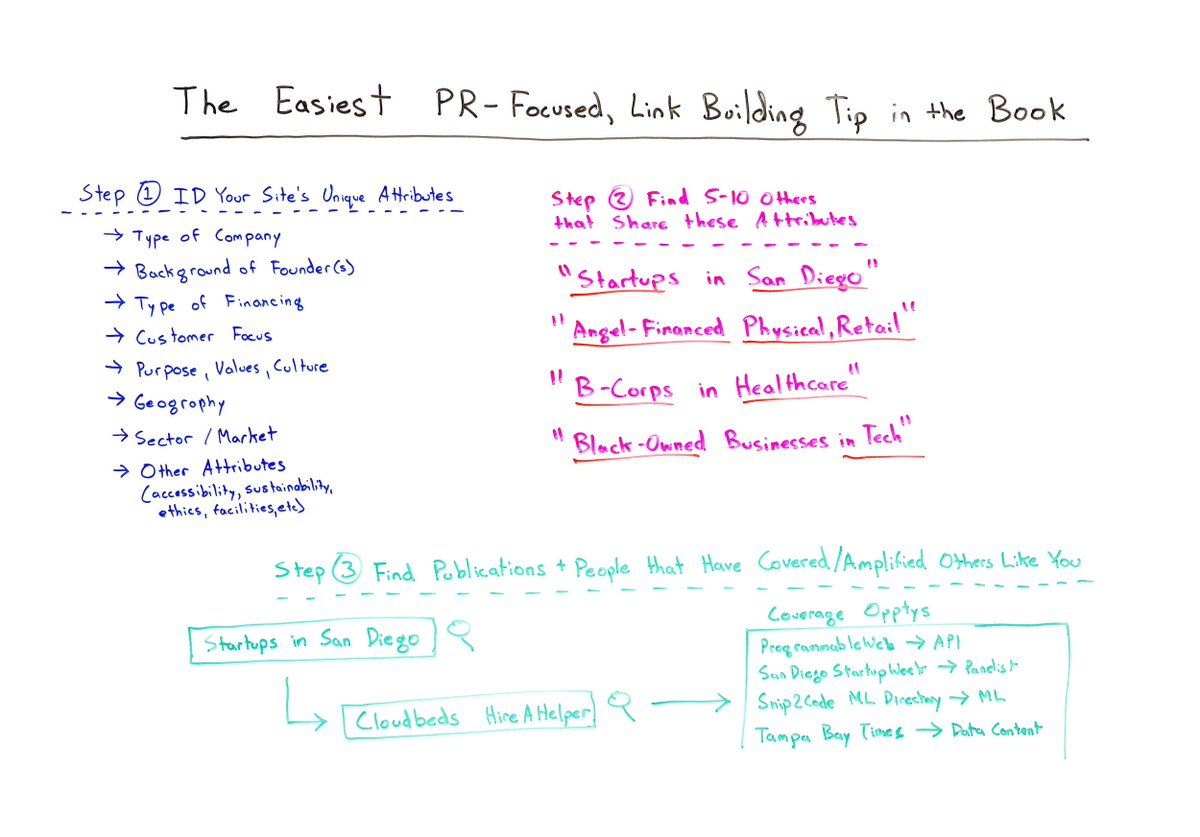 The Easiest PR-Focused, Link Building Tip in the Book
Step 1 ID Your Site's Unique Attributes
→ Type of Company
→ Background of Founder(s)
→ Type of Financing
→ Customer Focus
→ Purpose, Values, Culture
→ Geography
→ Sector / Market
→ Other Attributes
(accessibility, sustainability,
ethics, facilities, etc)
Step 2 Find 5-10 Others
that Share these Attributes
"Startups in San Diego"
"Angel-Financed Physical, Retail"
"B-Corps in Healthcare"
"Black-Owned Businesses in Tech"
Step 3 Find Publications + People that Have Covered/Amplified Others Like You
Startups in San Diego
Cloudbeds HireAHelper
Coverage Opptys
ProgrammableWeb → API
San Diego StartupWeek → Panelist
Snip2Code ML Directory → ML
Tampa Bay Times → Data Content